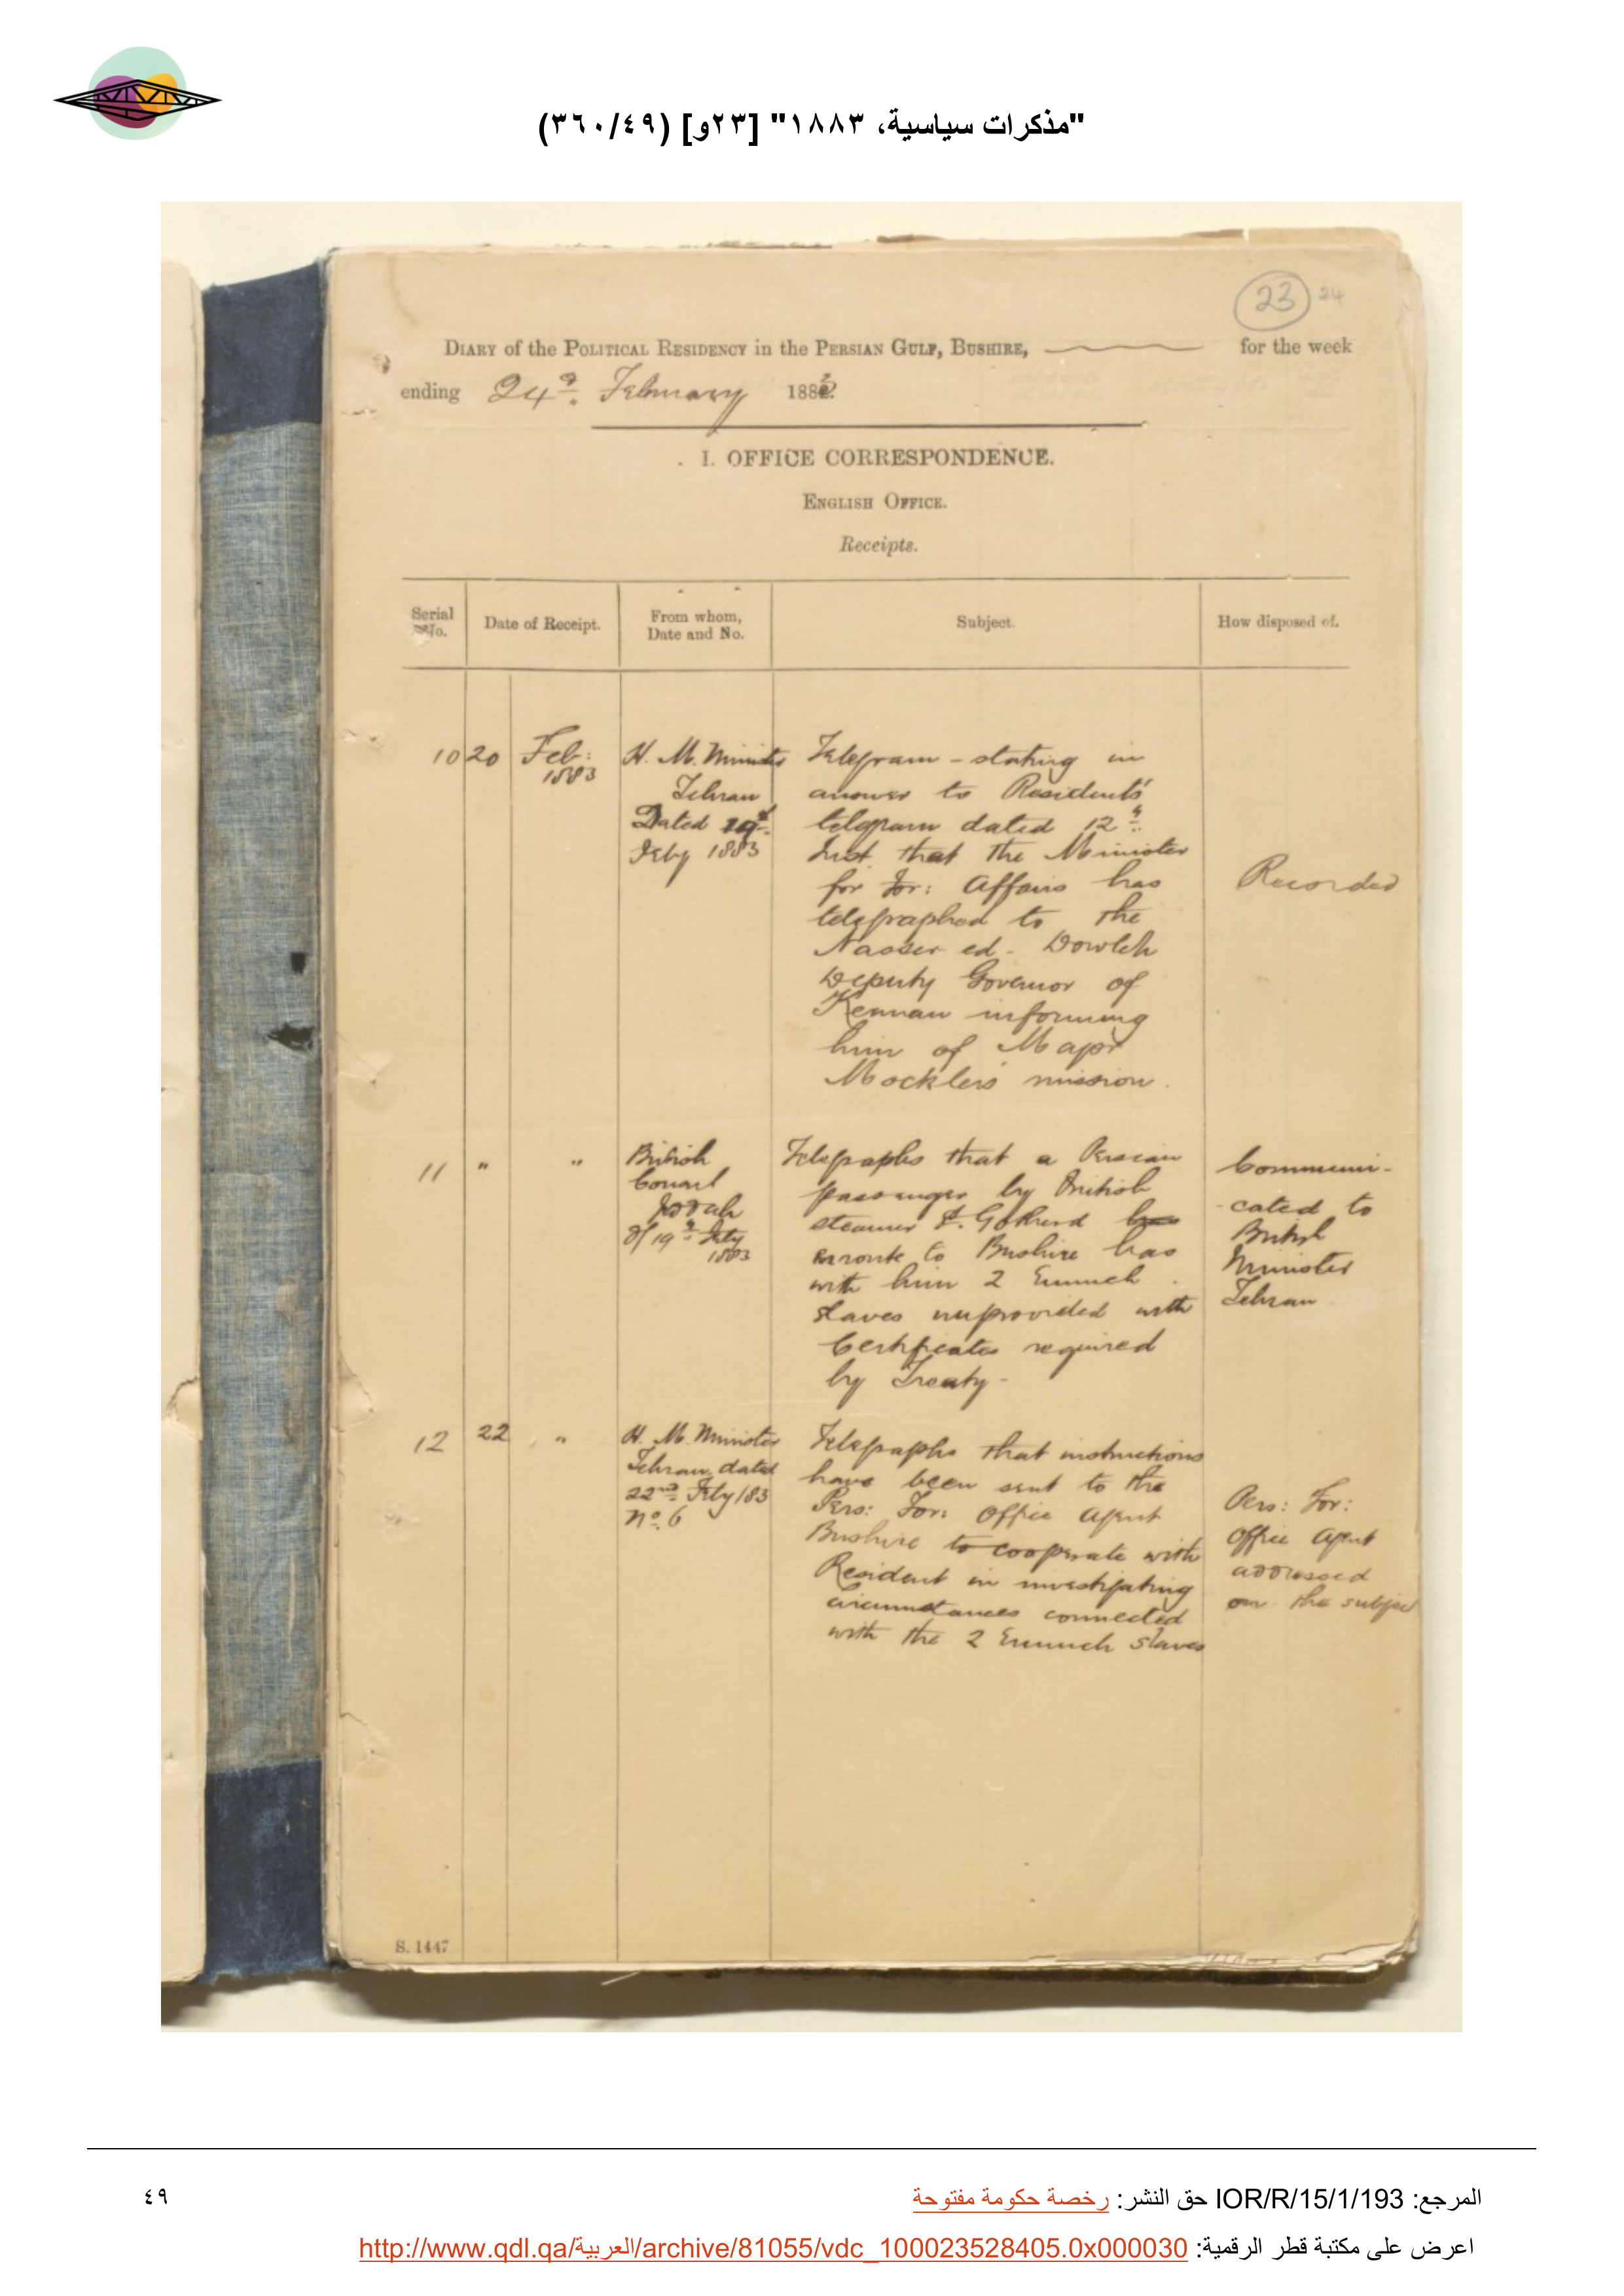 "مذكرات سياسية، ١٨٨٣" [٢٣و] (٣٦٠/٤٩)
23 24
DIARY of the POLITICAL RESIDENCY in the PERSIAN GULF, BUSHIRE, for the week
ending 24th February 1883
I. OFFICE CORRESPONDENCE.
ENGLISH OFFICE.
Receipts.
Serial No.
Date of Receipt.
From whom, Date and No.
Subject.
How disposed of.
10 20 Feb: 1883
H. M. Minister
Tehran
Dated 19th
Feby 1883
Telegram - stating in
answer to Residents'
telegram dated 12th
Inst. that the Minister
for For: Affairs has
telegraphed to the
Nasser ed- Dowleh
Deputy Governor of
Kerman informing
him of Major
Mockler's mission.
Recorded
11 " "
British
Consul
Jeddah
d/19th Feby
1883
Telegraphs that a Persian
passenger by British
steamer St. Gothard
enroute to Bushire has
with him 2 Eunuch
slaves unprovided with
Certificates required
by Treaty-
Communi-
-cated to
British
Minister
Tehran
12 22 "
H. M. Minister
Tehran dated
22nd Feby /83
No. 6
Telegraphs that instructions
have been sent to the
Pers: For: Office Agent
Bushire to cooperate with
Resident in investigating
circumstances connected
with the 2 Eunuch slaves
Pers: For:
Office Agent
addressed
on the subject
S. 1447
المرجع: IOR/R/15/1/193 حق النشر: رخصة حكومة مفتوحة
٤٩
اعرض على مكتبة قطر الرقمية: http://www.qdl.qa/العربية/archive/81055/vdc_100023528405.0x000030